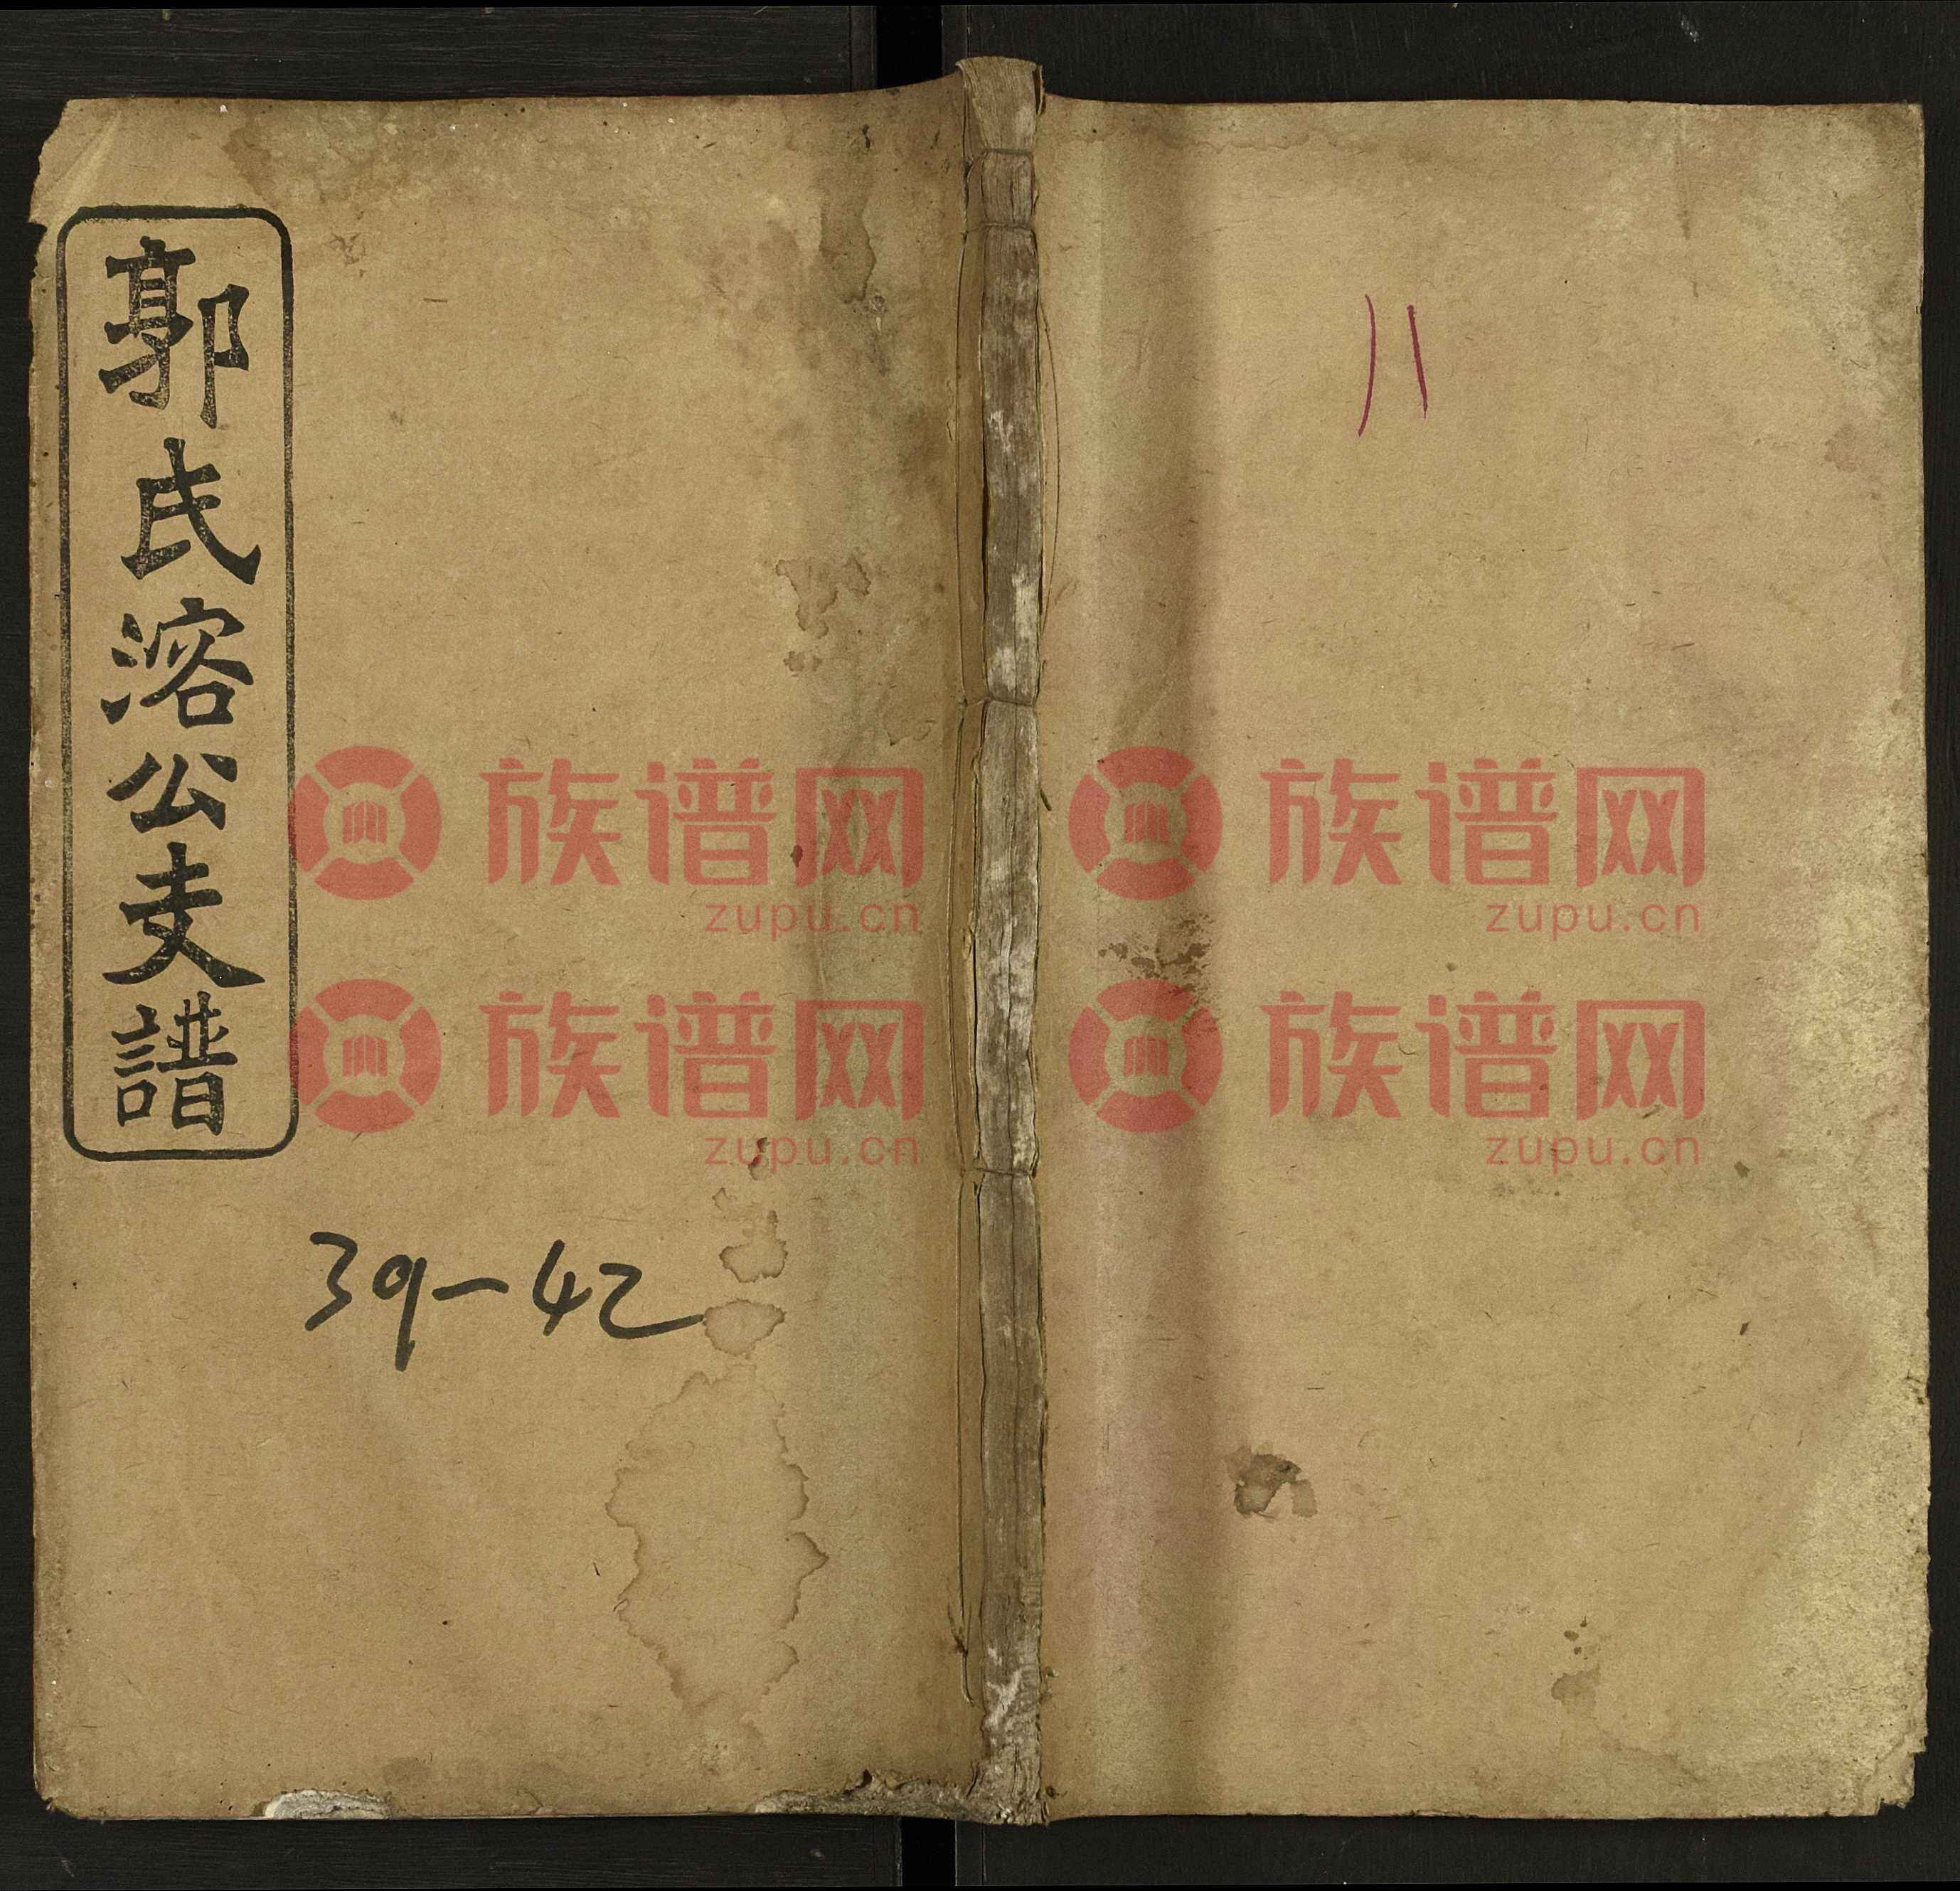 郭氏溶公支譜
39-42
11
族谱网 族谱网
zupu.cn zupu.cn
族谱网 族谱网
zupu.cn zupu.cn